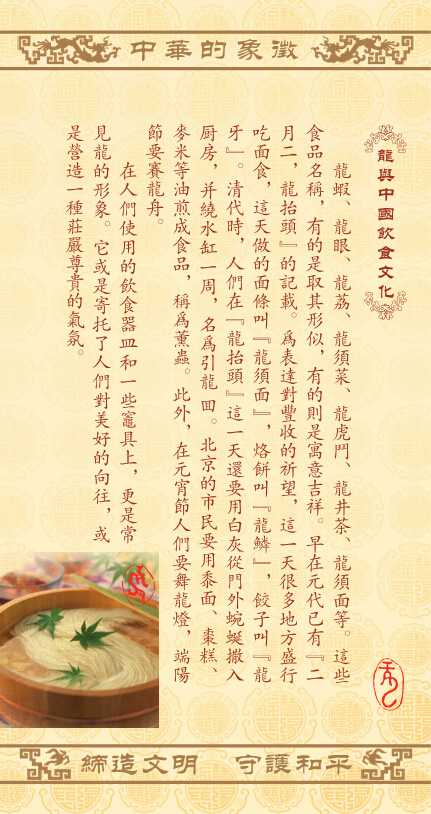 中華的象徵
龍與中國飲食文化
龍蝦、龍眼、龍荔、龍須菜、龍虎鬥、龍井茶、龍須面等。這些
食品名稱，有的是取其形似，有的則是寓意吉祥。早在元代已有『二
月二，龍抬頭』的記載。爲表達對豐收的祈望，這一天很多地方盛行
吃面食，這天做的面條叫『龍須面』，烙餅叫『龍鱗』，餃子叫『龍
牙』。清代時，人們在『龍抬頭』這一天還要用白灰從門外蜿蜒撒入
厨房，并繞水缸一周，名爲引龍回。北京的市民要用黍面、棗糕、
麥米等油煎成食品，稱爲薰蟲。此外，在元宵節人們要舞龍燈，端陽
節要賽龍舟。
在人們使用的飲食器皿和一些竈具上，更是常
見龍的形象。它或是寄托了人們對美好的向往，或
是營造一種莊嚴尊貴的氣氛。
締造文明 守護和平